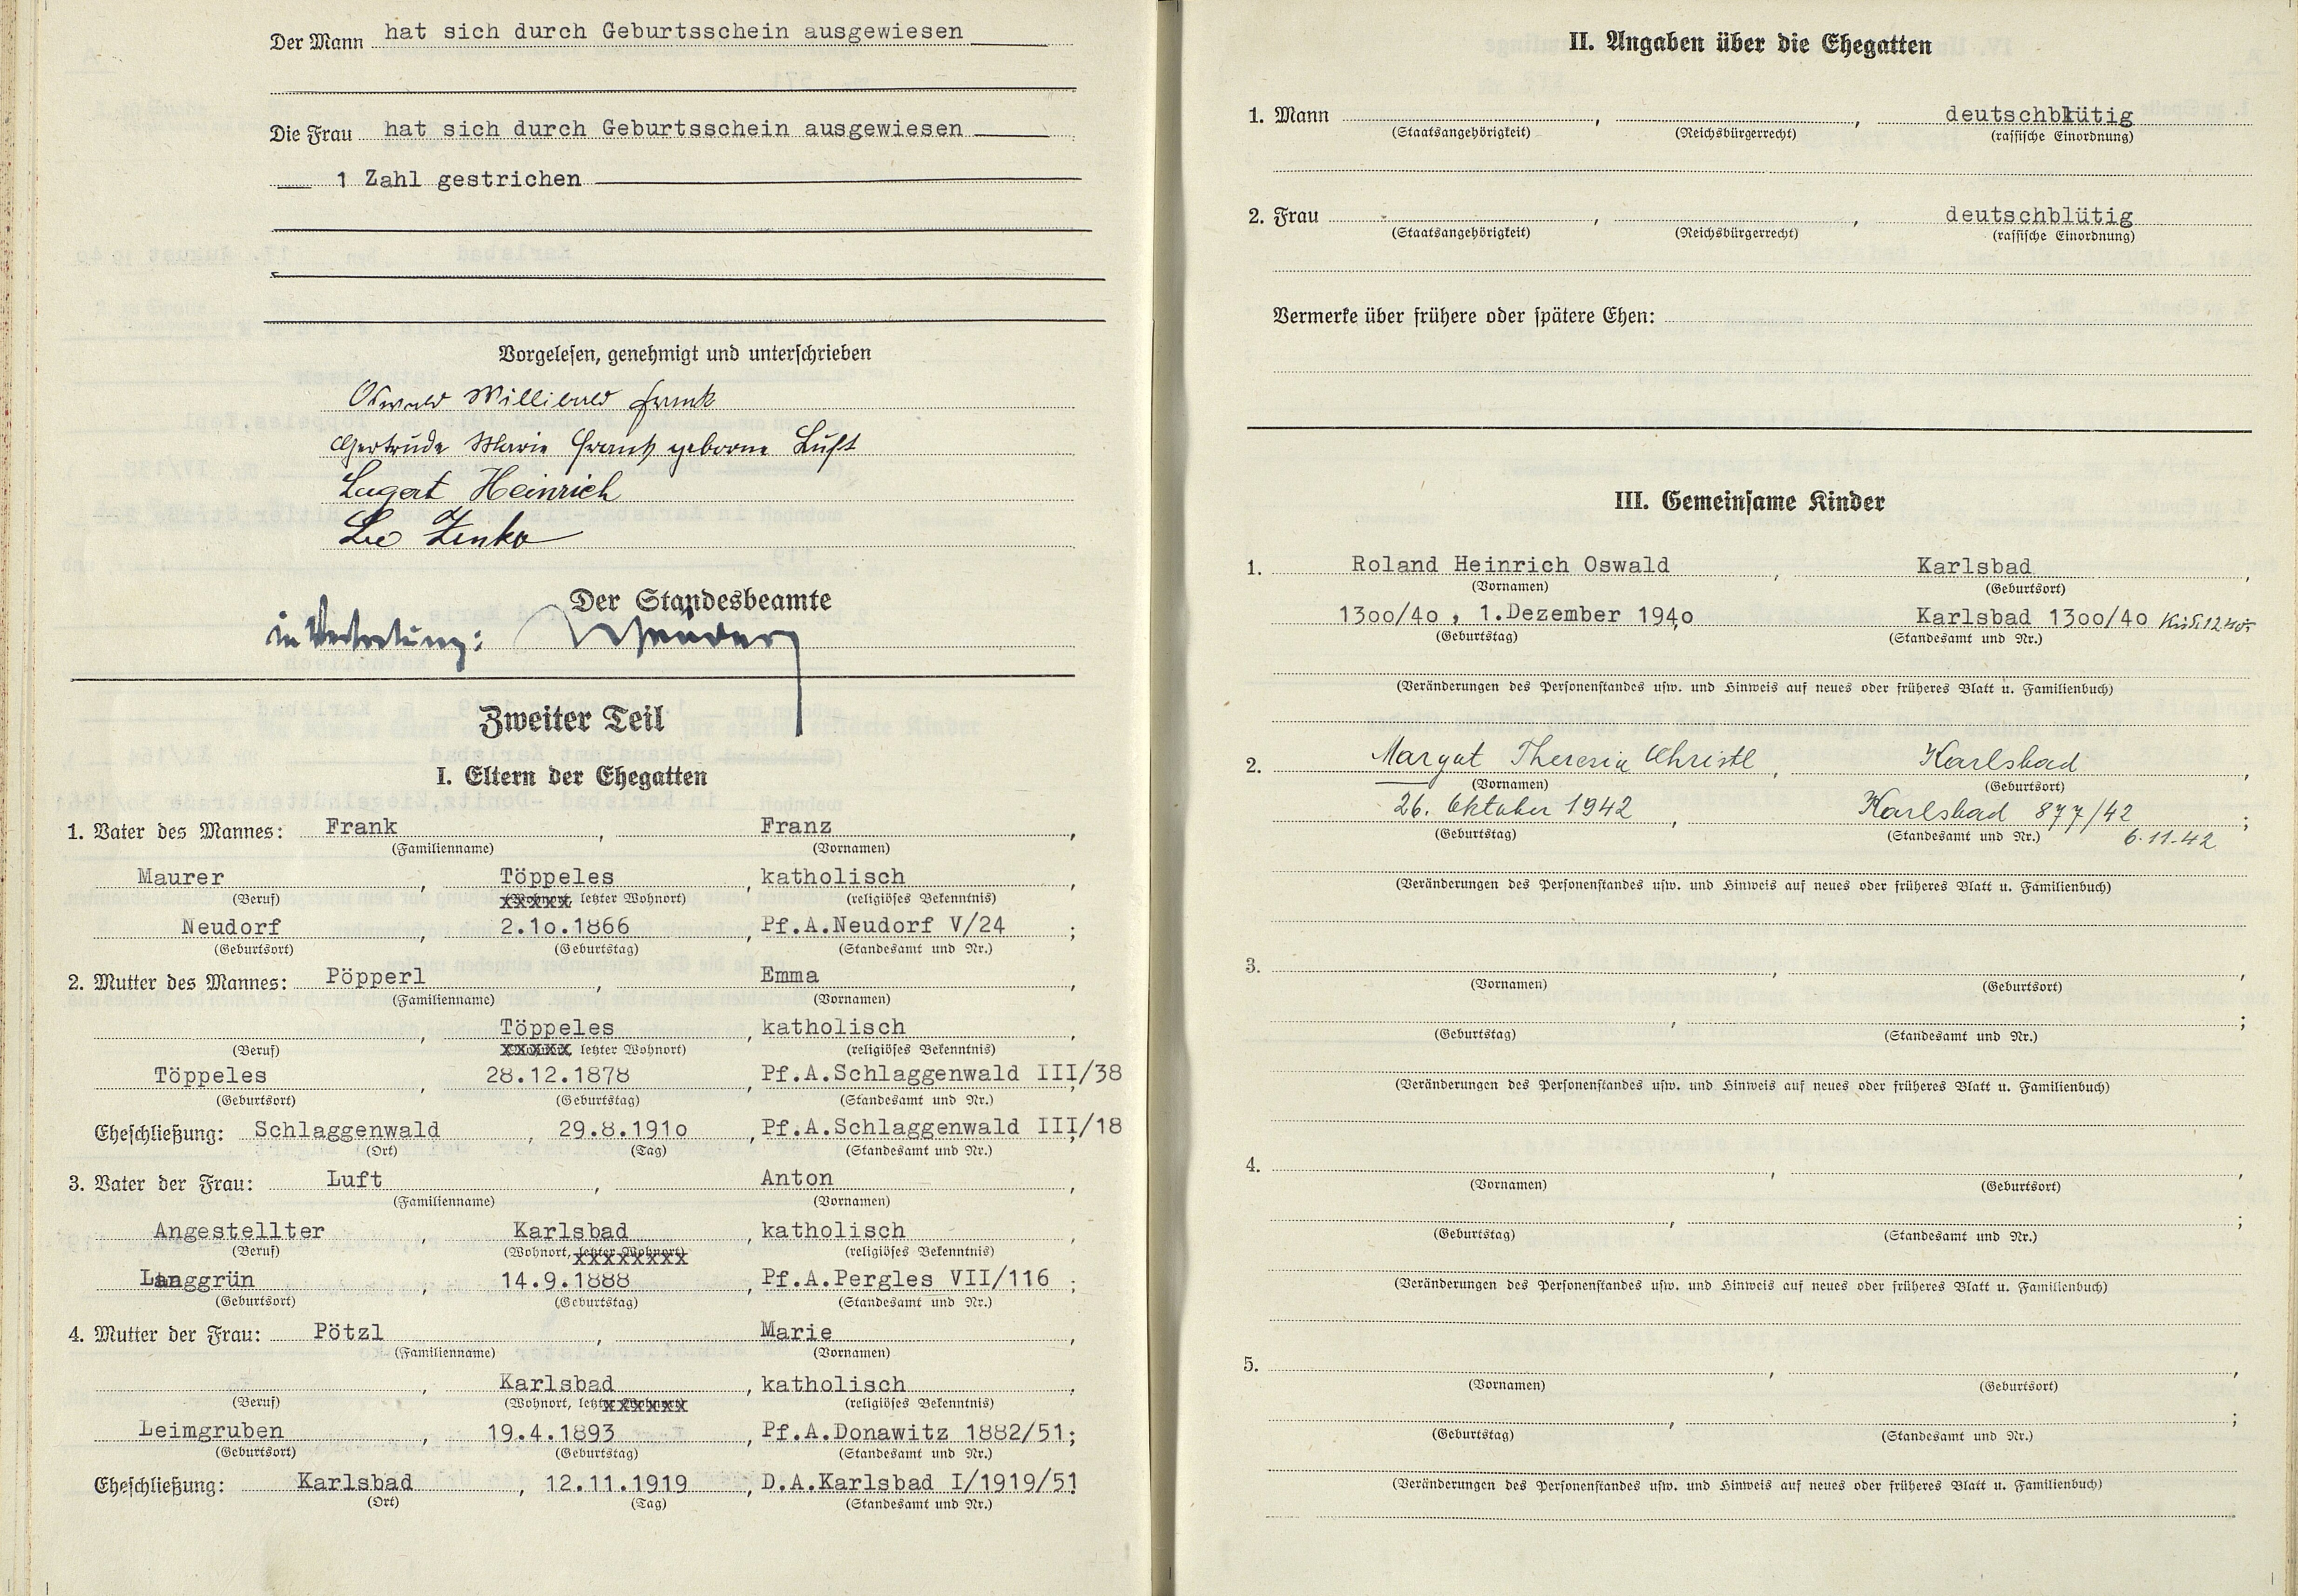 Der Mann hat sich durch Geburtsschein ausgewiesen
Die Frau hat sich durch Geburtsschein ausgewiesen
1 Zahl gestrichen
Vorgelesen, genehmigt und unterschrieben
Oswald Willibald Frank
Gertrude Marie Frank geborne Luft
Lugert Heinrich
Leo Zenko
Der Standesbeamte
in Vertretung:
Zweiter Teil
I. Eltern der Ehegatten
1. Vater des Mannes: Frank, Franz,
(Familienname) (Vornamen)
Maurer, Töppeles, katholisch,
(Beruf) (Wohnort, letzter Wohnort) (religiöses Bekenntnis)
Neudorf, 2.1o.1866, Pf.A.Neudorf V/24;
(Geburtsort) (Geburtstag) (Standesamt und Nr.)
2. Mutter des Mannes: Pöpperl, Emma,
(Familienname) (Vornamen)
, Töppeles, katholisch,
(Beruf) (Wohnort, letzter Wohnort) (religiöses Bekenntnis)
Töppeles, 28.12.1878, Pf.A.Schlaggenwald III/38;
(Geburtsort) (Geburtstag) (Standesamt und Nr.)
Eheschließung: Schlaggenwald, 29.8.191o, Pf.A.Schlaggenwald III/18;
(Ort) (Tag) (Standesamt und Nr.)
3. Vater der Frau: Luft, Anton,
(Familienname) (Vornamen)
Angestellter, Karlsbad, katholisch,
(Beruf) (Wohnort, letzter Wohnort) (religiöses Bekenntnis)
Langgrün, 14.9.1888, Pf.A.Pergles VII/116;
(Geburtsort) (Geburtstag) (Standesamt und Nr.)
4. Mutter der Frau: Pötzl, Marie,
(Familienname) (Vornamen)
, Karlsbad, katholisch,
(Beruf) (Wohnort, letzter Wohnort) (religiöses Bekenntnis)
Leimgruben, 19.4.1893, Pf.A.Donawitz 1882/51;
(Geburtsort) (Geburtstag) (Standesamt und Nr.)
Eheschließung: Karlsbad, 12.11.1919, D.A.Karlsbad I/1919/51
(Ort) (Tag) (Standesamt und Nr.)
II. Angaben über die Ehegatten
1. Mann , , deutschblütig
(Staatsangehörigkeit) (Reichsbürgerrecht) (rassische Einordnung)
2. Frau , , deutschblütig
(Staatsangehörigkeit) (Reichsbürgerrecht) (rassische Einordnung)
Vermerke über frühere oder spätere Ehen:
III. Gemeinsame Kinder
1. Roland Heinrich Oswald, Karlsbad,
(Vornamen) (Geburtsort)
13oo/4o, 1.Dezember 194o Karlsbad 13oo/4o
(Geburtstag) (Standesamt und Nr.)
(Veränderungen des Personenstandes usw. und Hinweis auf neues oder früheres Blatt u. Familienbuch)
2. Margot Theresia Christl, Karlsbad,
(Vornamen) (Geburtsort)
26. Oktober 1942, Karlsbad 877/42;
(Geburtstag) (Standesamt und Nr.) 6.11.42
(Veränderungen des Personenstandes usw. und Hinweis auf neues oder früheres Blatt u. Familienbuch)
3. , ,
(Vornamen) (Geburtsort)
, ;
(Geburtstag) (Standesamt und Nr.)
(Veränderungen des Personenstandes usw. und Hinweis auf neues oder früheres Blatt u. Familienbuch)
4. , ,
(Vornamen) (Geburtsort)
, ;
(Geburtstag) (Standesamt und Nr.)
(Veränderungen des Personenstandes usw. und Hinweis auf neues oder früheres Blatt u. Familienbuch)
5. , ,
(Vornamen) (Geburtsort)
, ;
(Geburtstag) (Standesamt und Nr.)
(Veränderungen des Personenstandes usw. und Hinweis auf neues oder früheres Blatt u. Familienbuch)